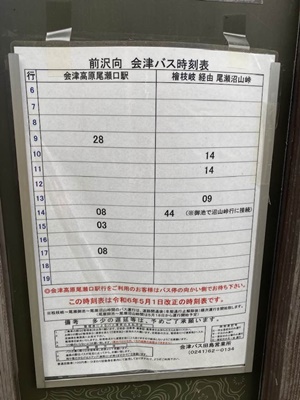 前沢向 会津バス時刻表
行 会津高原尾瀬口駅 檜枝岐 経由 尾瀬沼山峠
6
7
8
9 28
10 14
11 14
12
13 09
14 08 44 (※御池で沼山峠行に接続)
15 03
16
17 08
18
19
◎会津高原尾瀬口駅行をご利用のお客様はバス停の向かい側でお待ち下さい。
この時刻表は令和6年5月1日改正の時刻表です。
会津バス田島営業所
(0241)62-0134